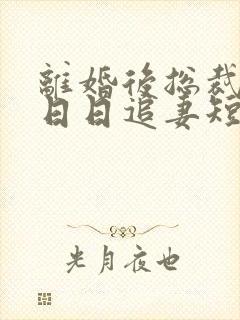 離婚後総裁
日日追妻短
光月夜也